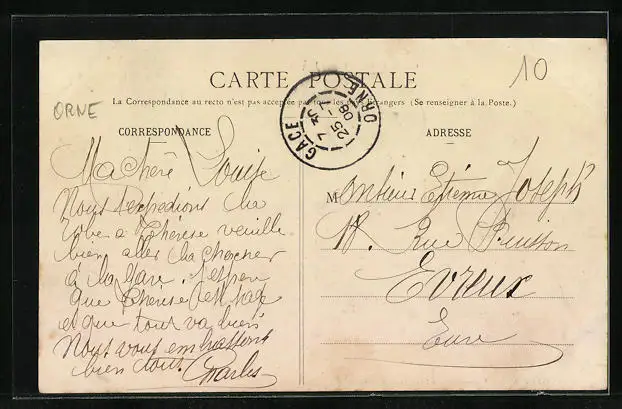 10
CARTE POSTALE
La Correspondance au recto n'est pas acceptée par tous les pays étrangers (Se renseigner à la Poste.)
ORNE
GACE
7 30
25 -7
08
ORNE
CORRESPONDANCE
Ma chère Louise
Nous t'expédions la
robe à Thérèse veuille
bien aller la chercher
à la gare. J'espère
que Thérèse est sage
et que tout va bien
Nous vous embrassons
bien tous Charles
ADRESSE
Monsieur Etienne Joseph
Rue Buisson
Evreux
Eure